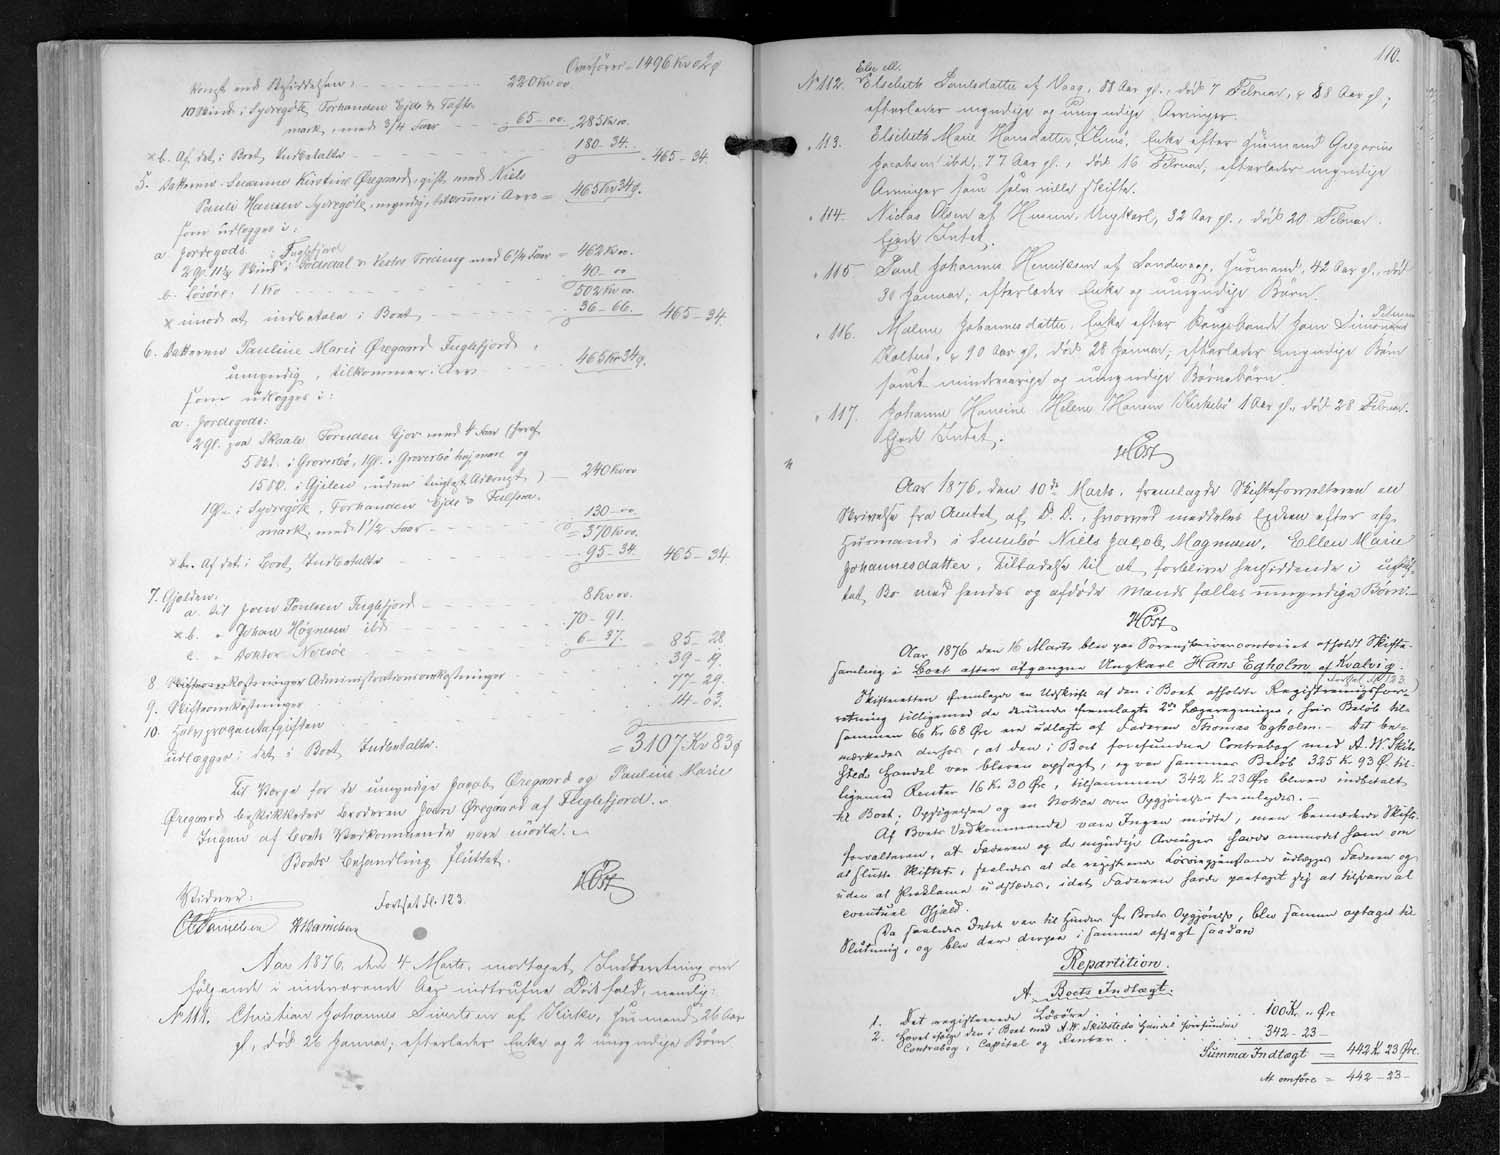 Overføres - 1496 Kr 02 Ø
Konst ved Besiddelsen, - - - 220 Kr 00
i Sydregöte, Forhenden Ejde & Tofte-
mark, med 3/4 Faar - - 65 - 00. 285 Kr 00.
× b. Af det i Boet Indbetalte - - - 180 - 34. - 465 - 34.
5. Datteren Susanne Kirstine Øregaard, gift med Niels
Pauli Hansen Sydregöte, myndig, tilkommer i Arv = 465 Kr 34 Ø.
som udlægges i:
a. Jordegods: Fuglefjord
2 Gl. i Todsdal & Vester med 6 1/4 Faar = 462 Kr 00.
b. Løsøre: 1 Ko - - - 40 - 00
502 Kr 00.
× imod at indbetale i Boet - - - 36 - 66. 465 - 34.
6. Datteren Pauline Marie Øregaard Fuglefjord,
umyndig, tilkommer i Arv - - - 465 Kr 34 Ø.
som udlægges i:
a. Jordegods:
2 Gl. paa Skaale med 4 Faar (hvoraf
5 Sk. i Groverbö, 1 Gl. i Groverbö hojmare og
15 Sk. i Gjilen, uden tinglæst Adkomst) - 240 Kr 00
1 Gl. i Sydregöte, Forhenden Ejde &
mark, med 1 1/2 Faar - - - 130 - 00
= 370 Kr 00.
× b. Af det i Boet Indbetalte - - - 95 - 34. 465 - 34
7. Gjælden:
a. til Joen Poulsen Fuglefjord - - - 8 Kr 00.
× b. " Johan Høgnesen ibd - - - 70 - 91.
c. " Doktor Nolsøe - - - 6 - 37. = 85 - 28
8. Administrationsomkostninger - - - 39 - 19.
9. Skifteomkostninger - - - 77 - 29.
10. Halvprocentafgiften - - - 14 - 03.
udlægges i det i Boet Indbetalte. = 3107 Kr 83 Ø
Til Værge for de umyndige Jacob Øregaard og Pauline Marie
Øregaard beskikkedes Broderen Joen Øregaard af Fuglefjord.
Ingen af Boets Vedkommende vare mødte.
Boets Behandling sluttet.
Høst
Vidner: Fortsat fl. 123.
Danielsen Danielsen
Aar 1876, den 4 Marts, modtoges Indberetning om
følgende i indeværende Aar indtrufne Dødsfald, nemlig:
No 111. Christian Johannes Sivertsen af Kirke, Husmand 26 Aar
gl., død 26 Januar; efterlader Enke og 2 umyndige Børn
110.
Else ell.
No 112. Elsebeth Poulsdatter af Vaag, 88 Aar gl., død 7 Februar, 88 Aar gl.;
efterlader myndige og umyndige Arvinger.
" 113. Elsebeth Marie Hansdatter, Enke efter Huusmand Gregorius
Jacobsen ibd. 77 Aar gl., død 16 Februar, efterlader myndige
Arvinger som selv ville skifte.
" 114. Niclas Olsen af Husum, Ungkarl, 32 Aar gl., død 20 Februar.
Ejede Intet.
" 115 Poul Johannes Henriksen af Sandevaag, Husmand, 42 Aar gl., død
30 Januar; efterlader Enke og umyndige Børn.
" 116. Malene Johannesdatter, Enke efter Kongsbonde Joen Simonsen
Kaltbak, 90 Aar gl., død 28 Januar; efterlader myndige Børn
samt mindreaarige og umyndige Børnebørn.
" 117. Johanne Hansine Helene Hansen Kirkebö 1 Aar gl., død 28 Februar.
Ejede Intet.
Høst
Aar 1876, den 10de Marts, fremlagde Skifteforvalteren en
Skrivelse fra Amtet af D. D., hvorved meddeles Enken efter afg.
Husmand i Sumbö Niels Jacob Magnusen, Ellen Marie
Johannesdatter, Tilladelse til at forblive hensiddende i uskif-
tet Bo med hendes og afdøde Mands fælles umyndige Børn. -
Høst
Aar 1876 den 16 Marts blev paa Sorenskrivercontoiret afholdt Skifte-
samling i Boet efter afgangne Ungkarl Hans Egholm af Kvalvig.
(Fortsat fl. 123.)
Skifteretten fremlagde en Udskrift af den i Boet afholdte Registreringsfor-
retning tilligemed de derunder fremlagte 2de Lægeregninger, hvis Beløb til-
sammen 66 Kr 68 Øre ere udlagte af Faderen Thomas Egholm. - Det be-
mærkedes derhos, at den i Boet forefundne Contrabog med A. W. Skib-
steds Handel var bleven opsagt, og var sammes Beløb 325 Kr. 93 Ø. til-
ligemed Renter 16 Kr. 30 Øre, tilsammen 342 Kr. 23 Øre bleven indbetalt
til Boet; Opsigelsen og en Notice over Opgjørelsen fremlagdes. -
Af Boets Vedkommende vare Ingen mødte, men bemærkede Skifte-
forvalteren, at Faderen og de myndige Arvinger havde anmodet ham om
at slutte Skiftet, saaledes at de registrerede Løsøregjenstande udlægges Faderen og
uden at Proklama udstædes, idet Faderen havde paataget sig at tilsvare al
eventuel Gjæld.
Da saaledes Intet var til Hinder for Boets Opgjørelse, blev samme optaget til
Slutning, og blev der derpaa i samme afsagt saadan
Repartition.
A. Boets Indtægt.
1. Det registrerede Løsøre - - - 100 Kr. " Øre
2. Hævet ifølge den i Boet med A. W. Skibsteds Handel forefundne
Contrabog, Capital og Renter - - - 342 - 23 -
Summa Indtægt = 442 Kr. 23 Øre.
At omføre = 442 - 23 -